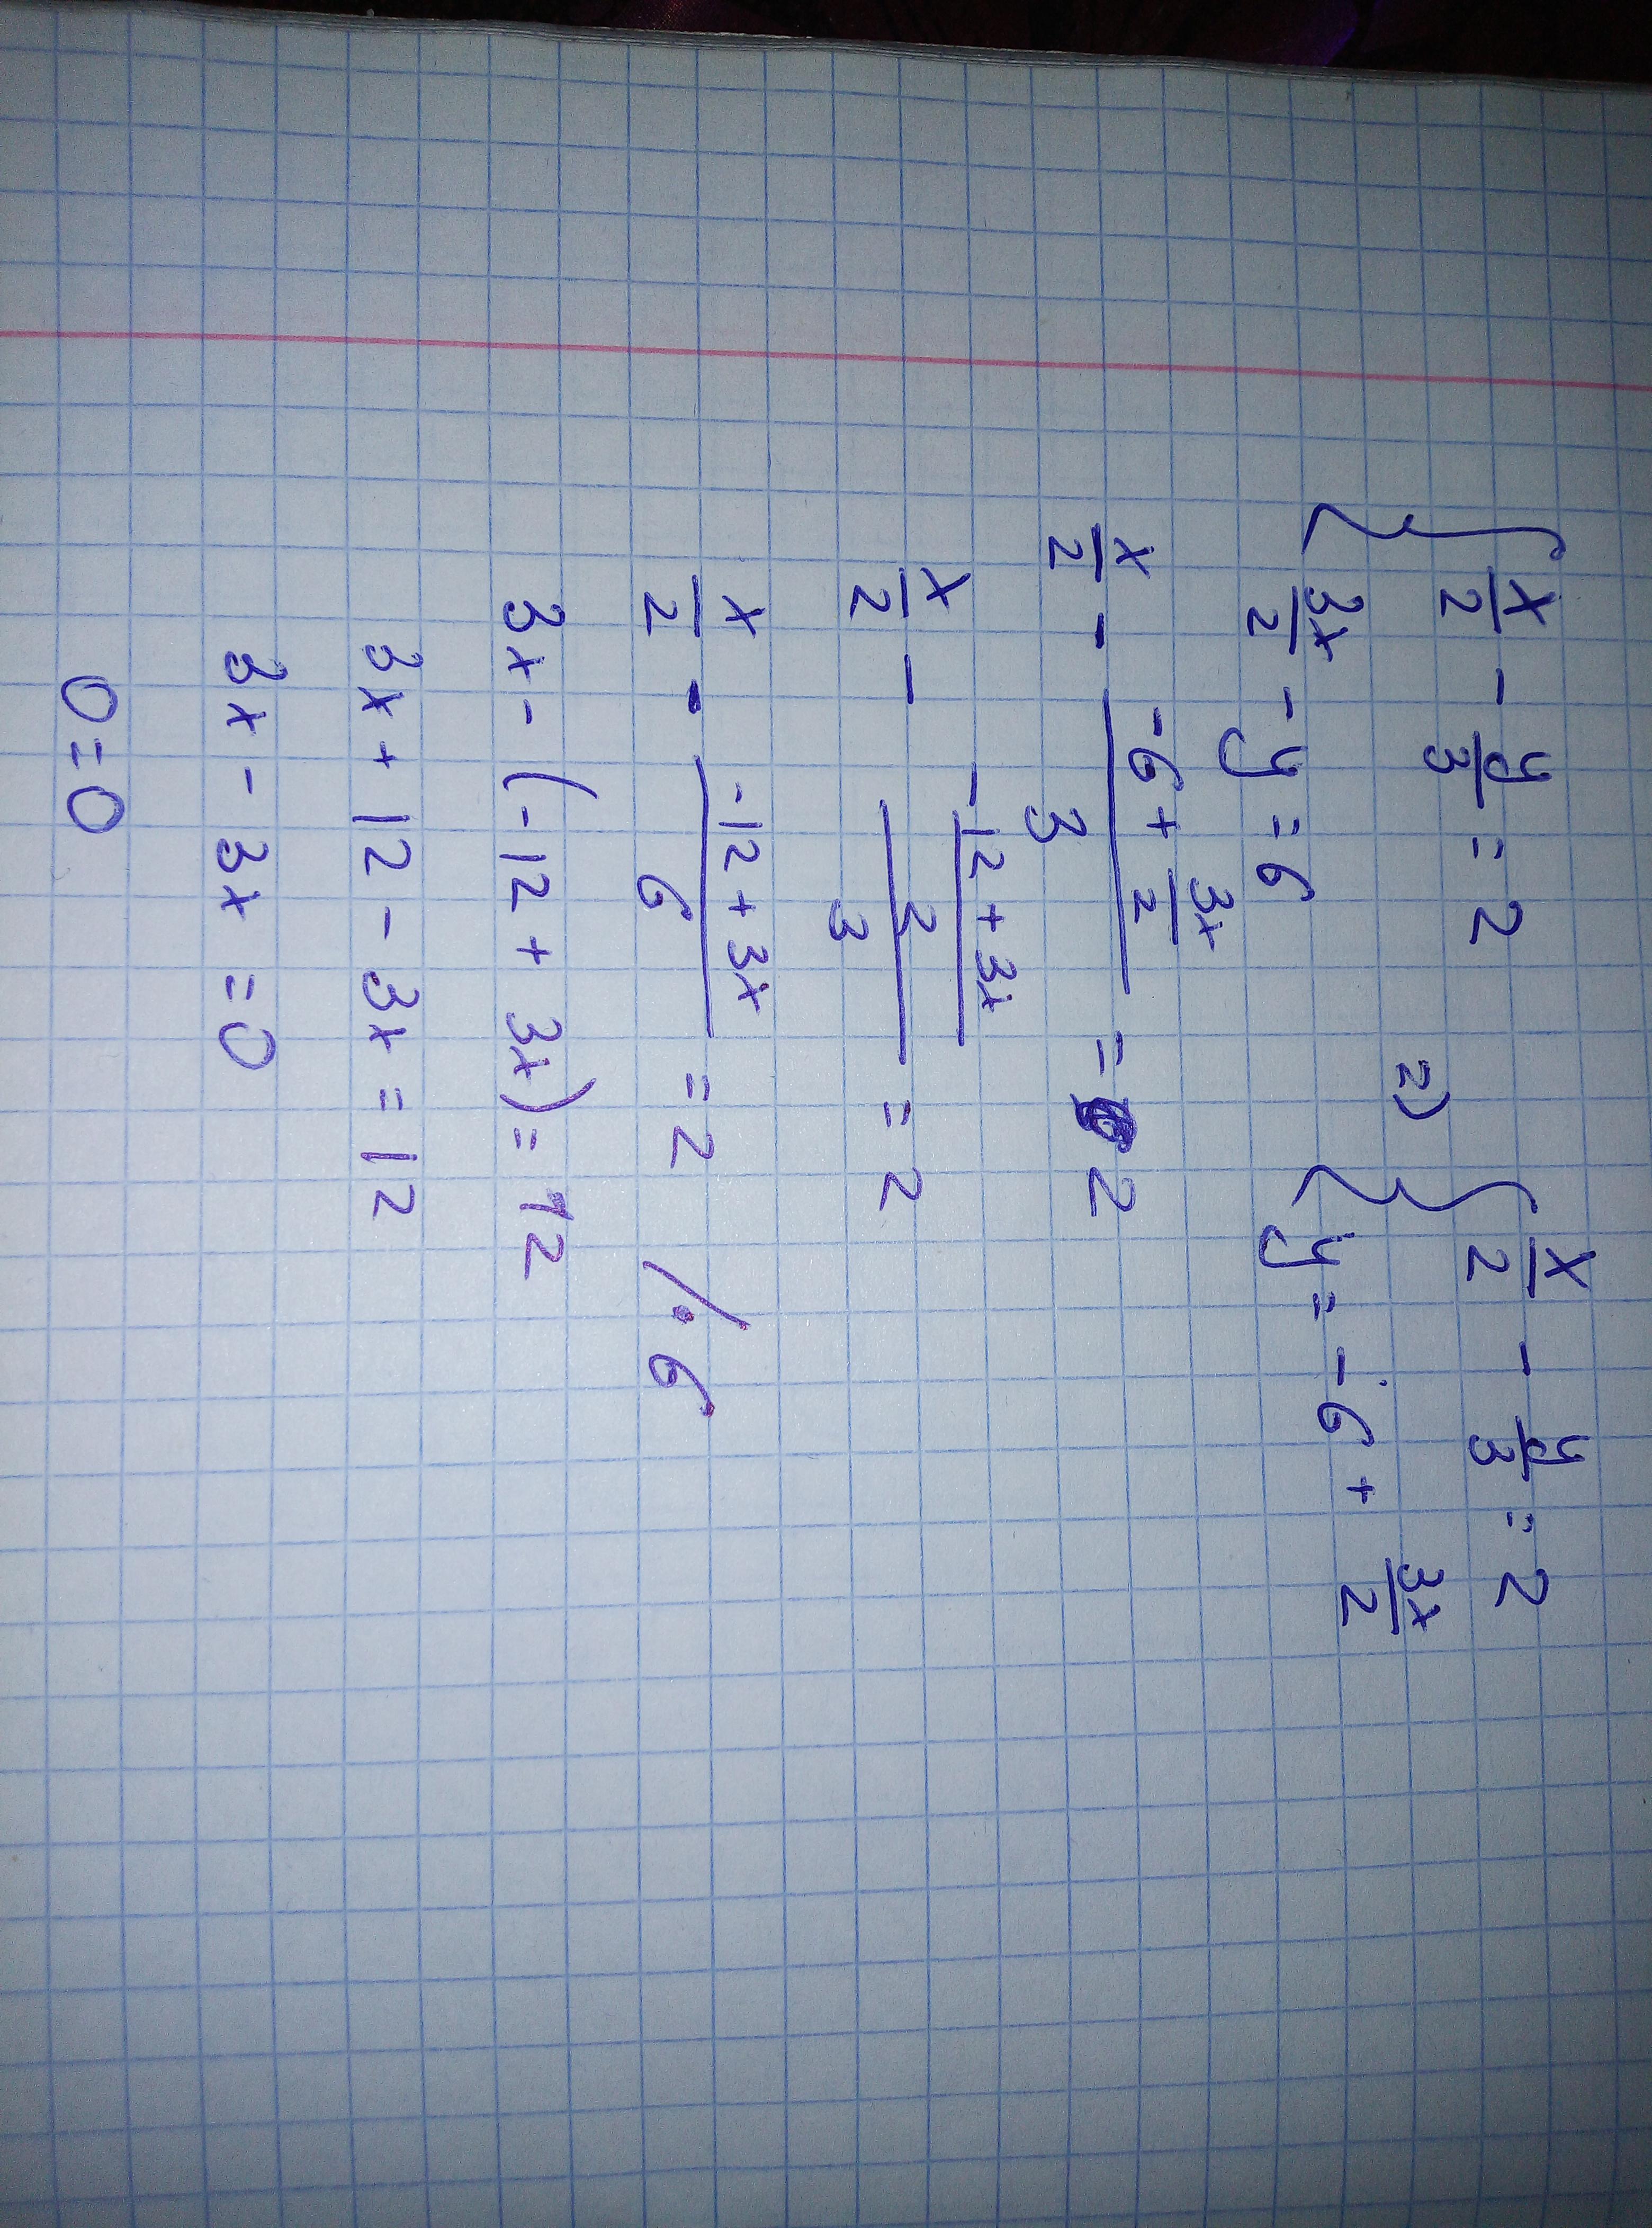 x/2 - y/3 = 2
3x/2 - y = 6
2)
x/2 - y/3 = 2
y = -6 + 3x/2
x/2 - (-6 + 3x/2)/3 = 2
x/2 - ((-12 + 3x)/2)/3 = 2
x/2 - (-12 + 3x)/6 = 2 /·6
3x - (-12 + 3x) = 12
3x + 12 - 3x = 12
3x - 3x = 0
0 = 0